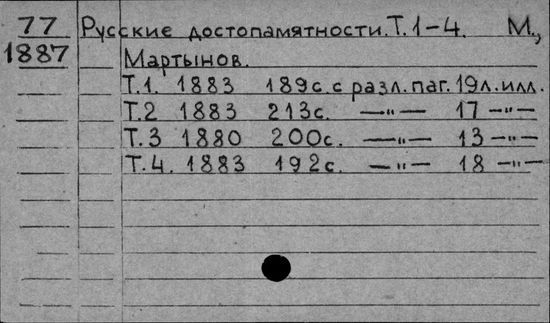 77 Русские достопамятности. Т. 1-4. М.,
1887 Мартынов.
Т.1. 1883 189с. с разл. паг. 19л. илл.
Т.2 1883 213с. —"— 17 —"—
Т.3 1880 200с. —"— 13 —"—
Т.4. 1883 192с. —"— 18 —"—